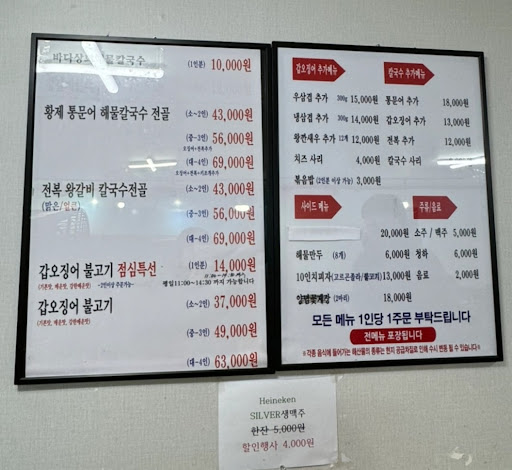 바다상 해물칼국수 (1인분) 10,000원
황제 통문어 해물칼국수 전골 (소~2인) 43,000원
(중~3인) 56,000원
(대~4인) 69,000원
전복 왕갈비 칼국수전골 (소~2인) 43,000원
(맑은/얼큰)
(중~3인) 56,000원
(대~4인) 69,000원
갑오징어 불고기 점심특선 (1인분) 14,000원
(기본맛, 매운맛, 갈릭매운맛) -2인이상 주문가능- 평일11:00~14:30 까지 가능합니다
갑오징어 불고기 (소~2인) 37,000원
(기본맛, 매운맛, 갈릭매운맛)
(중~3인) 49,000원
(대~4인) 63,000원
갑오징어 추가메뉴
우삼겹 추가 300g 15,000원
냉삼겹 추가 300g 14,000원
왕깐새우 추가 12개 12,000원
치즈 사리 4,000원
볶음밥 (2인분 이상 가능) 3,000원
칼국수 추가메뉴
통문어 추가 18,000원
갑오징어 추가 13,000원
전복 추가 12,000원
칼국수 사리
사이드 메뉴
20,000원
해물만두 (8개) 6,000원
10인치피자(고르곤졸라/불고기) 13,000원
양념꽃게장 (2마리) 18,000원
주류/음료
소주 / 맥주 5,000원
청하 6,000원
음료 2,000원
모든 메뉴 1인당 1주문 부탁드립니다
전메뉴 포장됩니다
※각종 음식에 들어가는 해산물의 종류는 현지 공급차질로 인해 수시 변동 될 수 있습니다※
Heineken
SILVER생맥주
한잔 5,000원
할인행사 4,000원